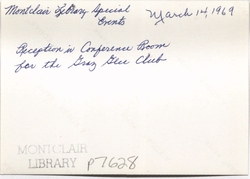 Montclair Library Special Events
March 14, 1969
Reception in Conference Room
for the Graz Glee Club
MONTCLAIR
LIBRARY
P7628